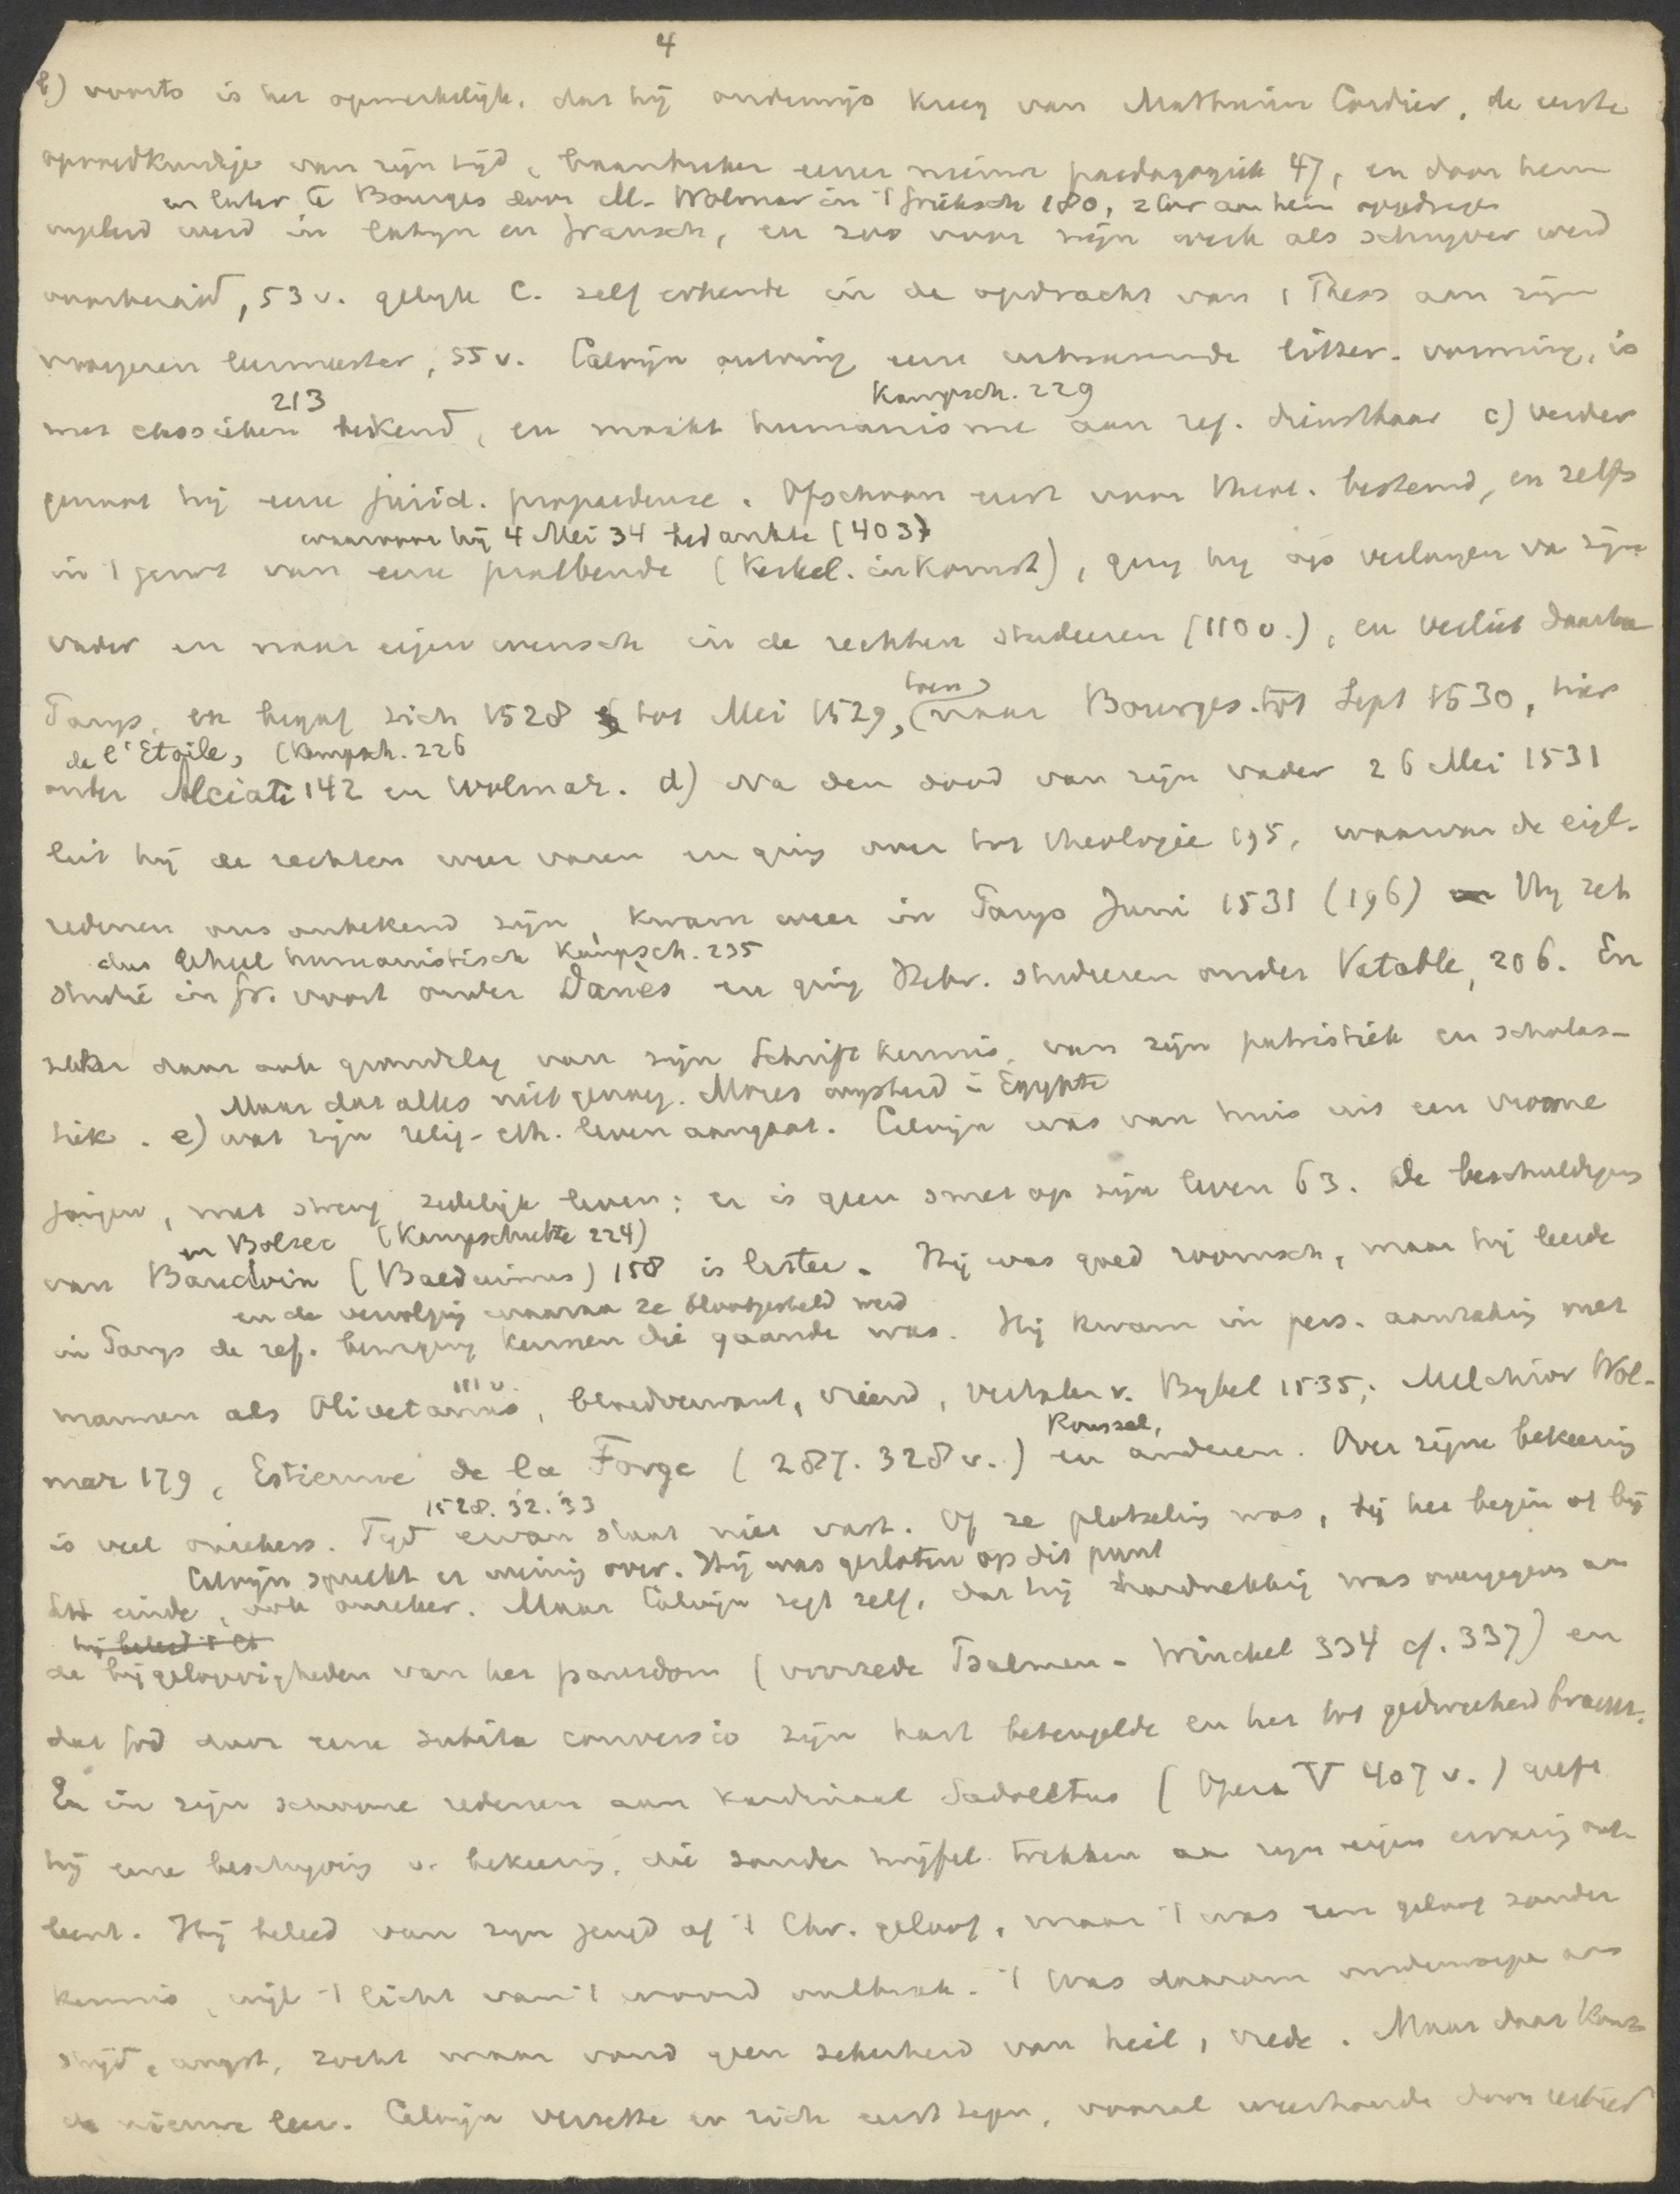 4
b) voorts is het opmerkelijk, dat hij onderwijs kreeg van Mathurin Cordier, de eerste
opvoedkundige van zijn tijd, baanbreker eener nieuwe paedagogiek 47, en door hem
en later te Bourges door M. Wolmar in 't grieksch 180, 2 Cor aan hem opgedragen
ingeleid werd in latijn en fransch, en zoo voor zijn werk als schrijver werd
voorbereid, 53 v. gelijk C. zelf erkende in de opdracht van 1 Thess aan zijn
vroegeren leermeester, 55 v. Calvijn ontving eene uitnemende litter. vorming, is
213 Kampsch. 229
met classieken bekend, en maakt humanisme aan ref. dienstbaar c) verder
genoot hij eene jurid. propaedeuse. Ofschoon eerst voor theol. bestemd, en zelfs
waarvoor hij 4 Mei 34 bedankte (403)
in 't genot van eene praebende (Kerkel. inkomst), ging hij op verlangen va zijn
vader en naar eigen wensch in de rechten studeeren (110 v.), en verliet daartoe
toen
Parijs, en begaf zich 1528 tot Mei 1529, (naar Bourges. tot Sept 1530, hier
de l'Etoile, (Kampsch. 226
onder Alciati 142 en Wolmar. d) Na den dood van zijn vader 26 Mei 1531
liet hij de rechten weer varen en ging over tot theologie 195, waarvan de eigl.
redenen ons onbekend zijn, kwam weer in Parys Juni 1531 (196) Hij zet
dus geheel humanistisch Kampsch. 235
studie in gr. voort onder Danès en ging Hebr. studeeren onder Vatable, 206. En
zeker daar ook grondslag van zijn Schriftkennis, van zijn patristiek en scholas-
Maar dat alles niet genoeg. Mozes opgeleid in Egypte
tiek. e) wat zijn relig-eth. leven aangaat. Calvijn was van huis uit een vroome
jongen, met streng zedelijk leven; er is geen smet op zijn leven 63. De beschuldiging
en Bolsec (Kampschulte 224)
van Baudoin (Balduinus) 158 is laster. Hij was goed roomsch, maar hij leerde
en de vervolging waaraan ze blootgesteld werd
in Parys de ref. beweging kennen die gaande was. Hij kwam in pers. aanraking met
111 v.
mannen als Olivetanus, bloedverwant, vriend, vertaler v. Bybel 1535; Melchior Wol-
Roussel,
mar 179, Estienne de la Forge (287. 328 v.) en anderen. Over zijne bekeering
1528. '32. '33
is veel onzekers. Tijd ervan staat niet vast. Of ze plotseling was, bij het begin of bij
Calvijn spreekt er weinig over. Hij was gesloten op dit punt
het einde, ook onzeker. Maar Calvijn zegt zelf, dat hij hardnekkig was overgegeven aan
de bijgelovigheden van het pausdom (voorrede Psalmen - Winckel 334 cf. 337) en
dat God door eene subita conversio zijn hart beteugelde en het tot gedweeheid bracht.
En in zijn schoone redenen aan kardinaal Sadoletus (Opera V 407 v.) geeft
hij eene beschrijving v. bekeering, die zonder twijfel trekken aan zijn eigen ervaring ont-
leent. Hij beleed van zijn jeugd af 't Chr. geloof, maar 't was een geloof zonder
kennis, wijl 't licht van 't woord ontbrak. 't Was daarom
strijd, angst, zocht maar vond geen zekerheid van heil, vrede. Maar daar kwam
de nieuwe leer. Calvijn verzette er zich eerst tegen, vooral weerhouden door eerbied